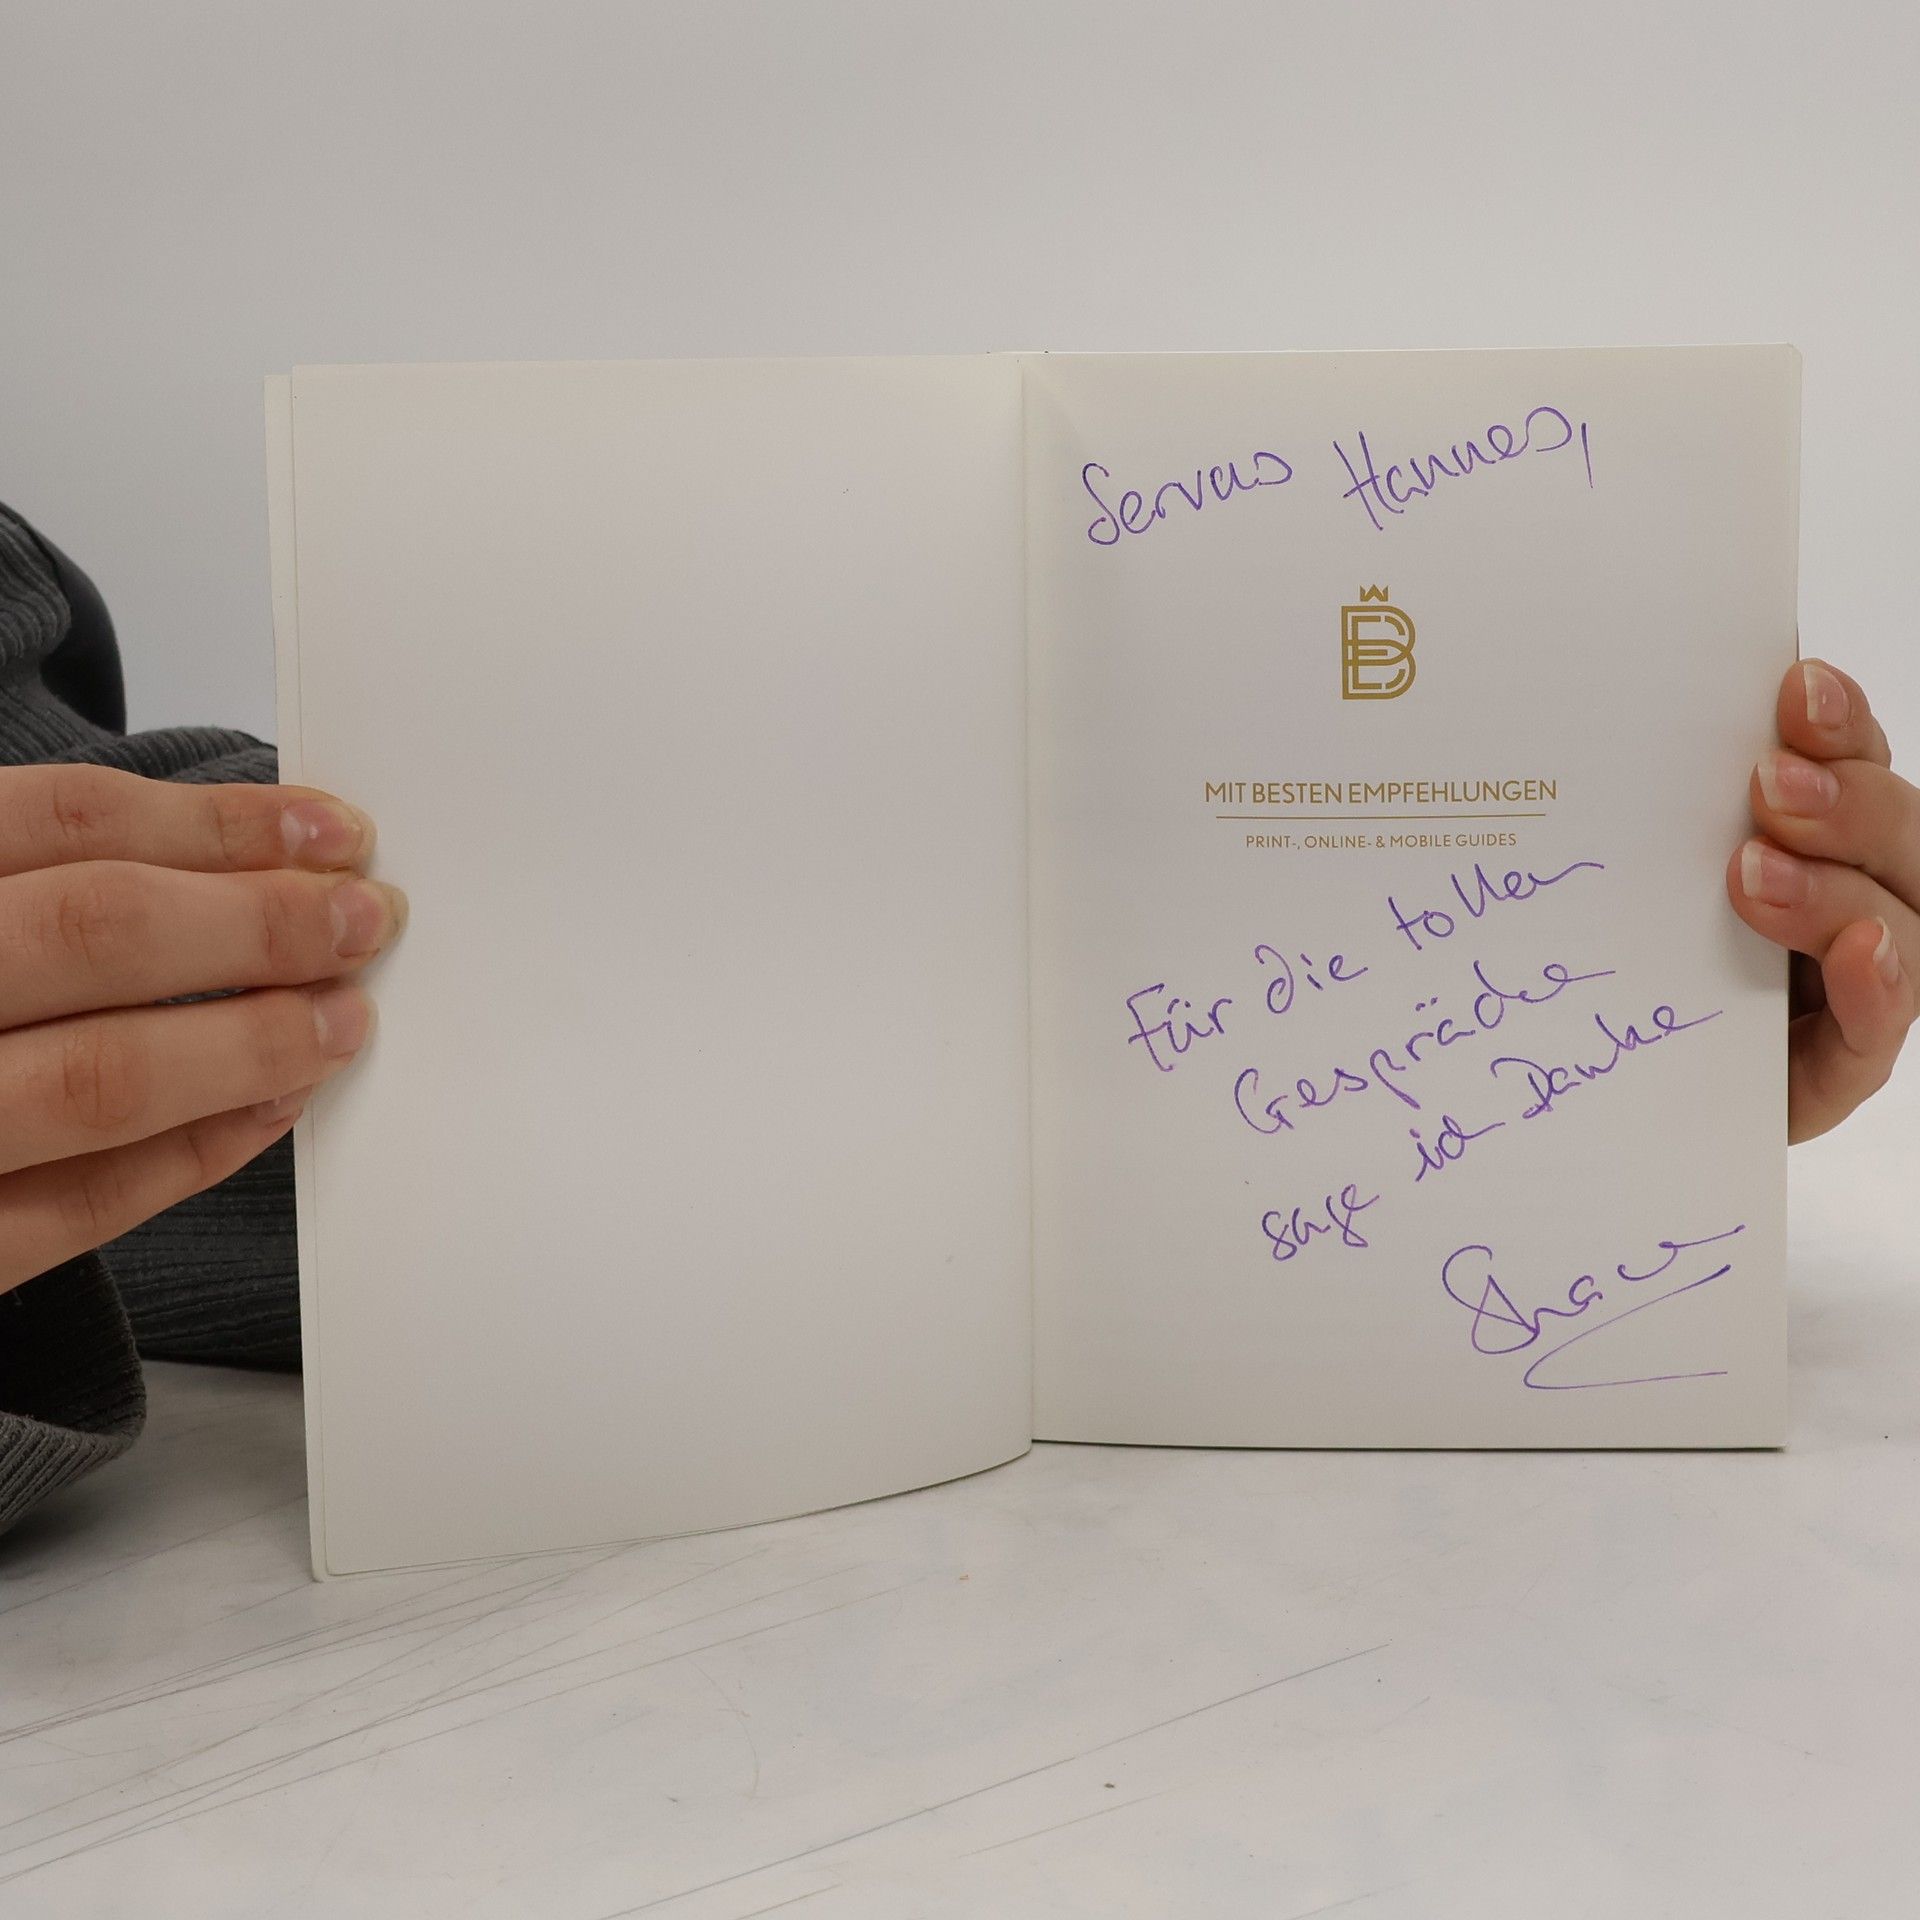 Servus Hannes,
MIT BESTEN EMPFEHLUNGEN
PRINT-, ONLINE- & MOBILE GUIDES
Für die tollen
Gespräche
sage ich Danke